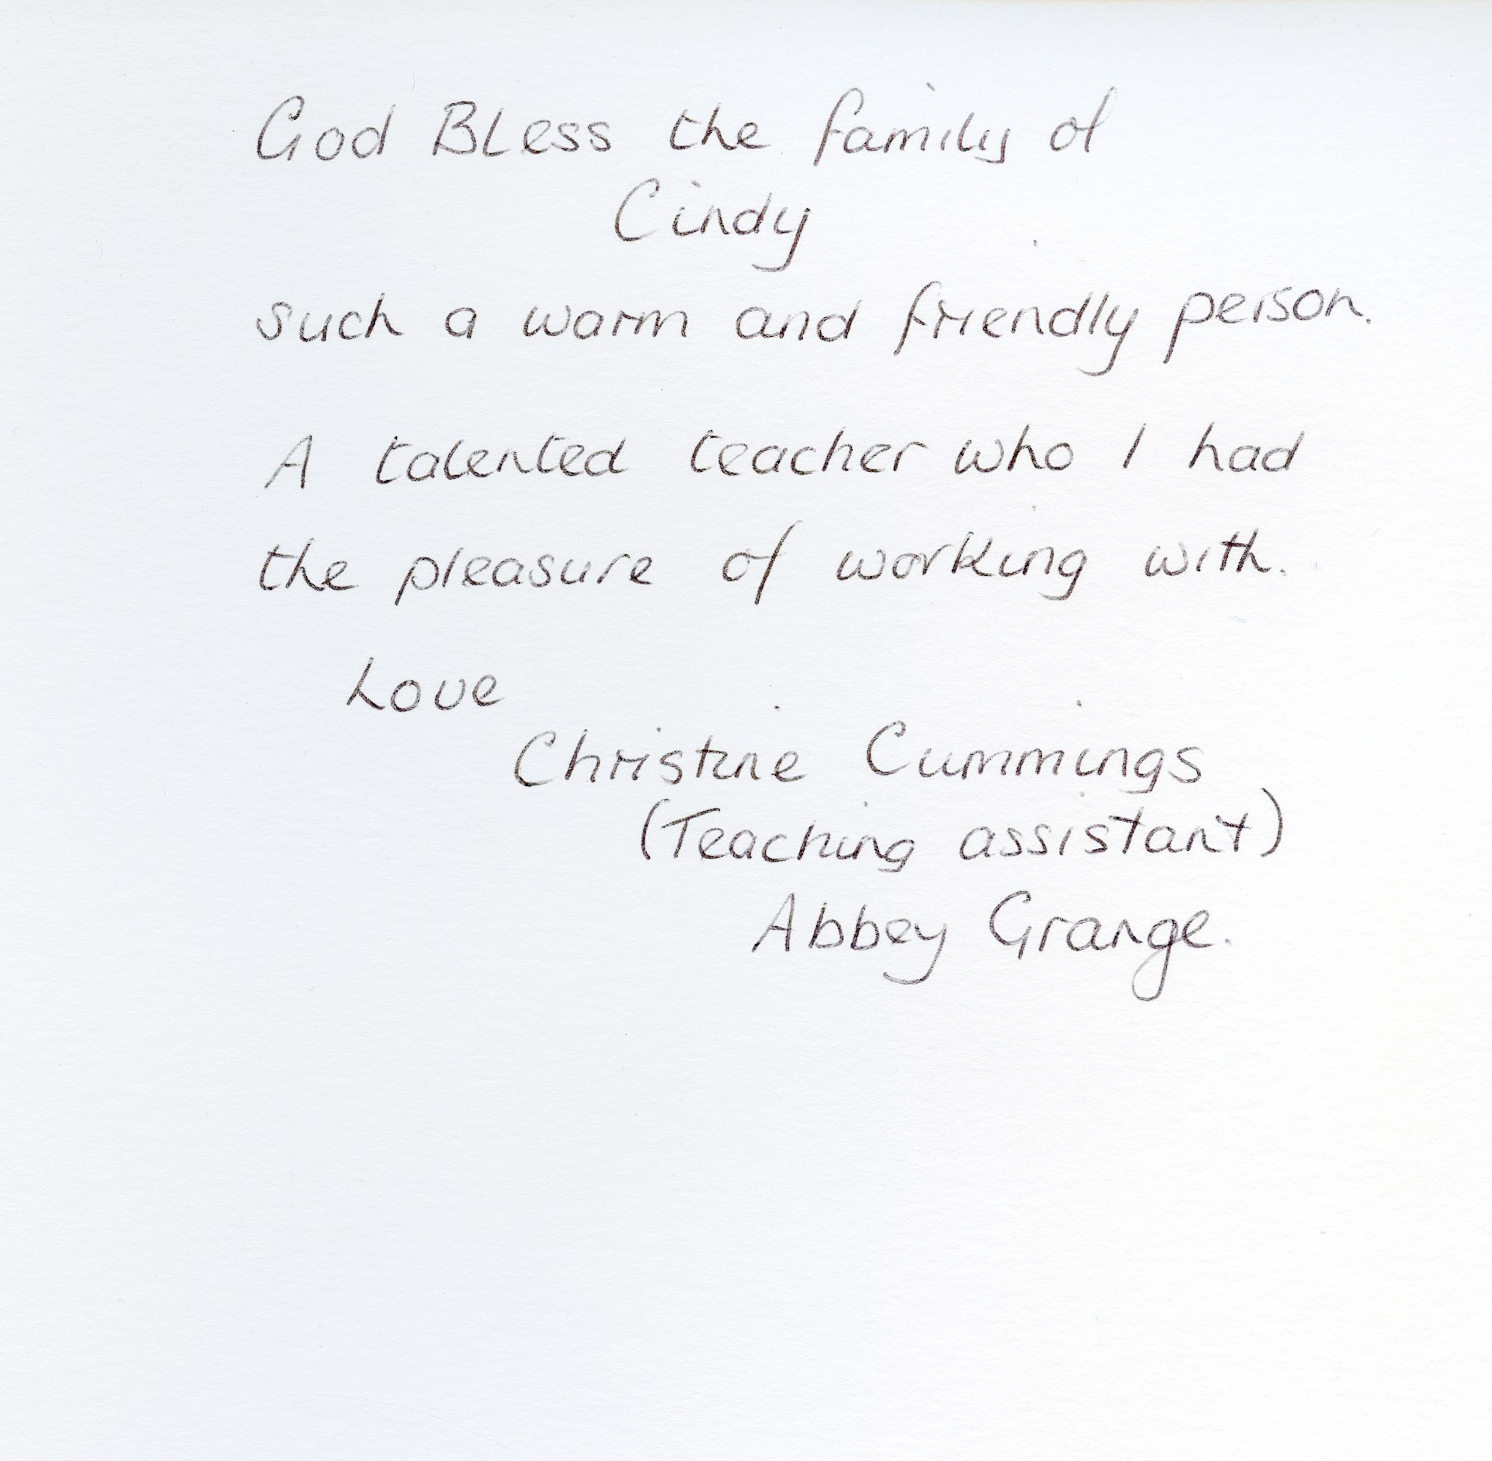 God Bless the family of
Cindy
such a warm and friendly person.
A talented teacher who I had
the pleasure of working with.
Love
Christine Cummings
(Teaching assistant)
Abbey Grange.